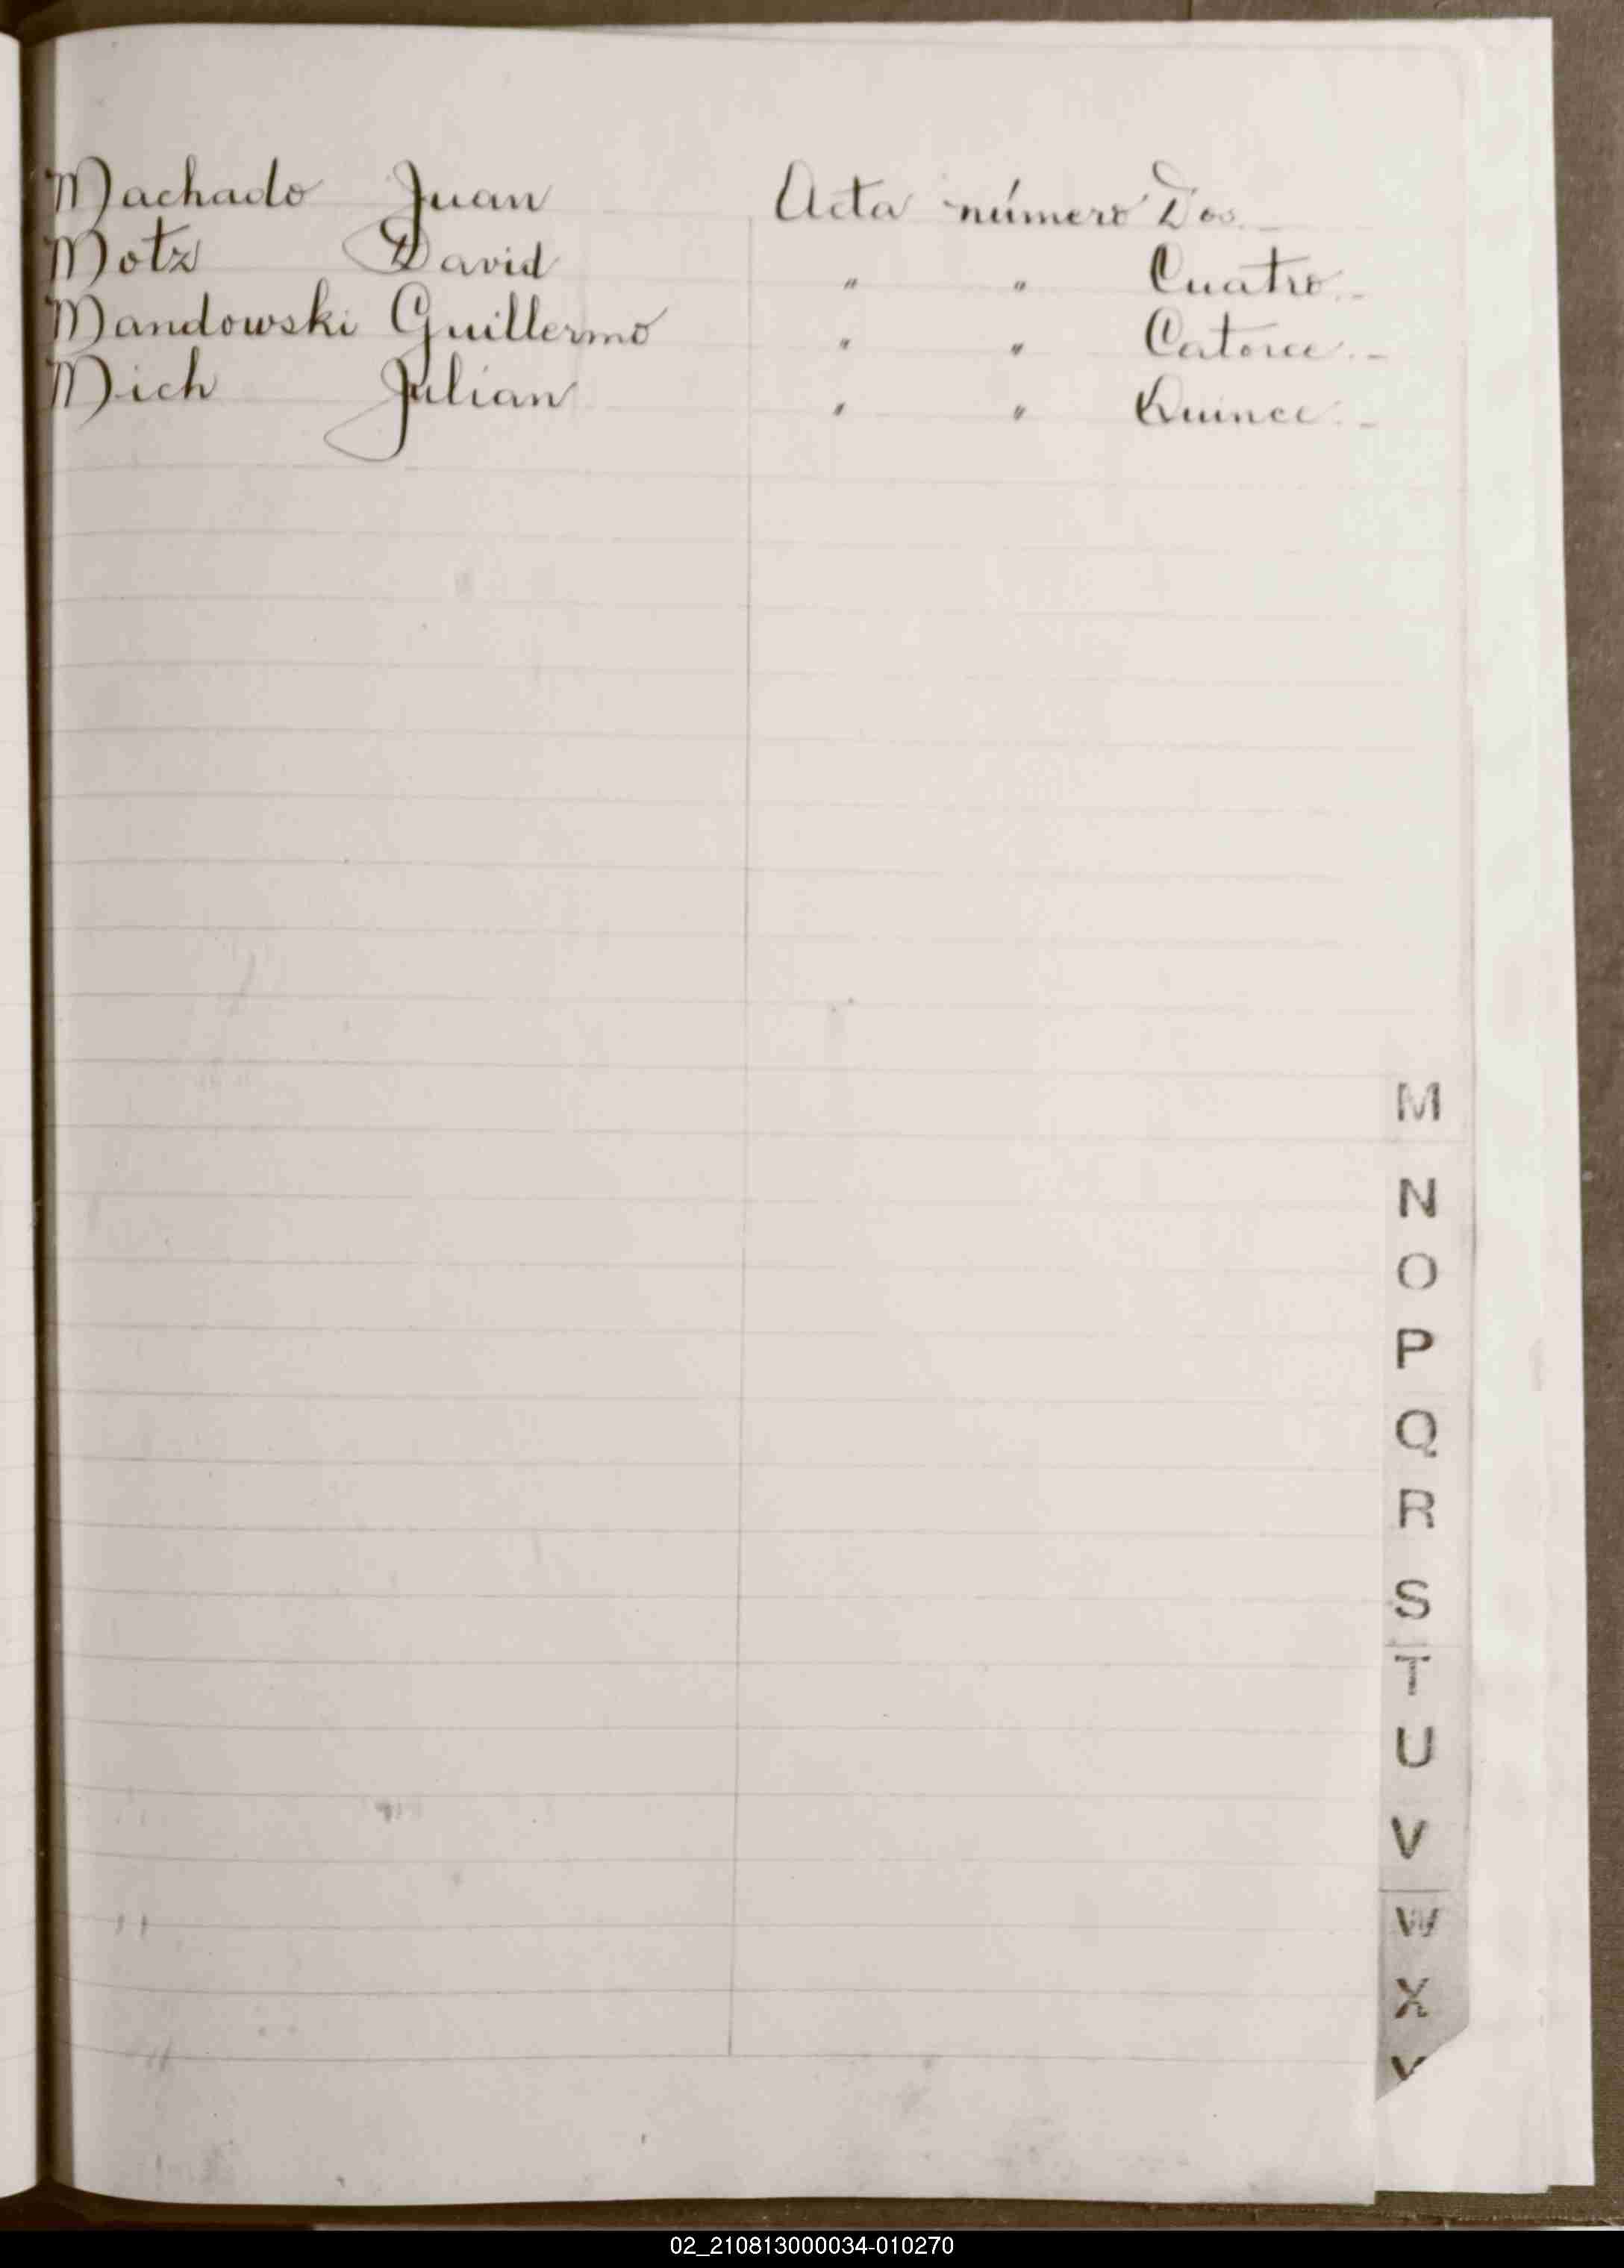 Machado Juan Acta número Dos.
Motz David " " Cuatro.
Mandowski Guillermo " " Catorce.
Mich Julian " " Quince.
M
N
O
P
Q
R
S
T
U
V
W
X
02_210813000034-010270